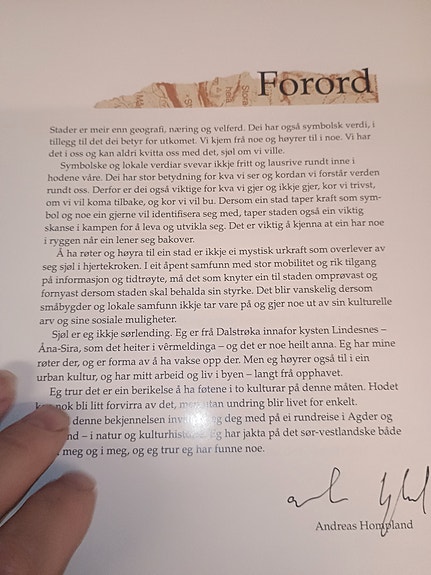 Forord
Stader er meir enn geografi, næring og velferd. Dei har også symbolsk verdi, i
tillegg til det dei betyr for utkomet. Vi kjem frå noe og høyrer til i noe. Vi har
det i oss og kan aldri kvitta oss med det, sjøl om vi ville.
Symbolske og lokale verdiar svevar ikkje fritt og lausrive rundt inne i
hodene våre. Dei har stor betydning for kva vi ser og kordan vi forstår verden
rundt oss. Derfor er dei også viktige for kva vi gjer og ikkje gjer, kor vi trivst,
om vi vil koma tilbake, og kor vi vil bu. Dersom ein stad taper kraft som sym-
bol og noe ein gjerne vil identifisera seg med, taper staden også ein viktig
skanse i kampen for å leva og utvikla seg. Det er viktig å kjenna at ein har noe
i ryggen når ein lener seg bakover.
Å ha røter og høyra til ein stad er ikkje ei mystisk urkraft som overlever av
seg sjøl i hjertekroken. I eit åpent samfunn med stor mobilitet og rik tilgang
på informasjon og tidtrøyte, må det som knyter ein til staden omprøvast og
fornyast dersom staden skal behalda sin styrke. Det blir vanskeleg dersom
småbygder og lokale samfunn ikkje tar vare på og gjer noe ut av sin kulturelle
arv og sine sosiale muligheter.
Sjøl er eg ikkje sørlending. Eg er frå Dalstrøka innafor kysten Lindesnes –
Åna-Sira, som det heiter i vêrmeldinga – og det er noe heilt anna. Eg har mine
røter der, og er forma av å ha vakse opp der. Men eg høyrer også til i ein
urban kultur, og har mitt arbeid og liv i byen – langt frå opphavet.
Eg trur det er ein berikelse å ha føtene i to kulturar på denne måten. Hodet
nok bli litt forvirra av det, men utan undring blir livet for enkelt.
denne bekjennelsen deg med på ei rundreise i Agder og
– i natur og kulturhistorie. Eg har jakta på det sør-vestlandske både
meg og i meg, og eg trur eg har funne noe.
Andreas Hompland